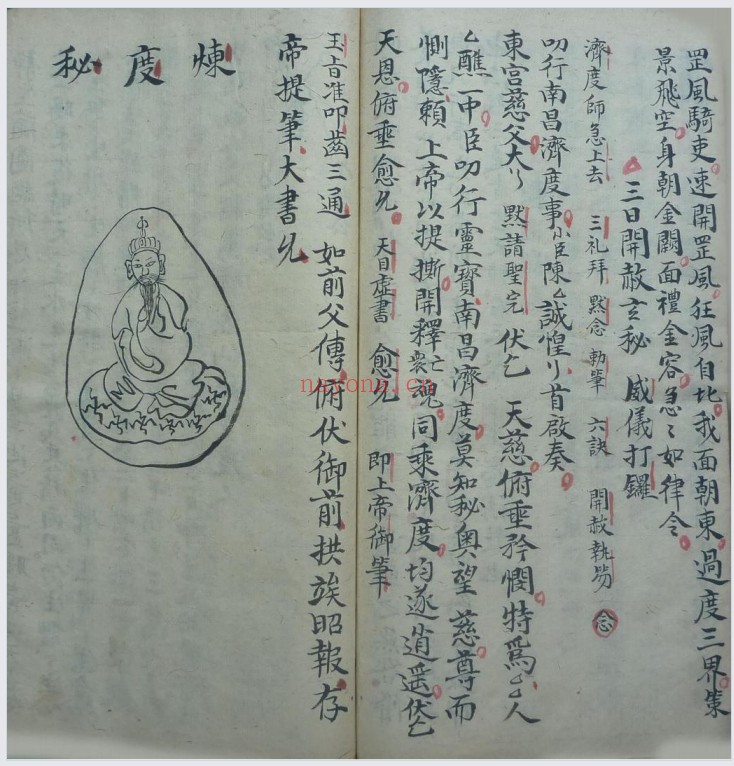 罡風騎吏速開罡風狂風自比我面朝東過度三界策
景飛空身朝金闕面禮金容急〻如律令
三日開赦玄秘 威儀打鑼
濟度師急上去 三礼拜 黙念 勅筆 六訣 開赦執笏 念
叨行南昌濟度事小臣陳厶誠惶〻首啟奏
東宮慈父大〻 黙請聖完 伏乞 天慈俯垂矜憫特爲厶厶人
厶醮一中臣叨行靈寶南昌濟度莫知秘奧望 慈尊而
惻隱頼 上帝以提撕開釋亡衆魂同乘濟度均遂逍遥伏乞
天恩俯垂愈允 天目虚書 愈允 即上帝御筆
玉旨准叩齒三通 如前父傳俯伏御前拱竢昭報存
帝提筆大書允
煉度秘
nayona.cn